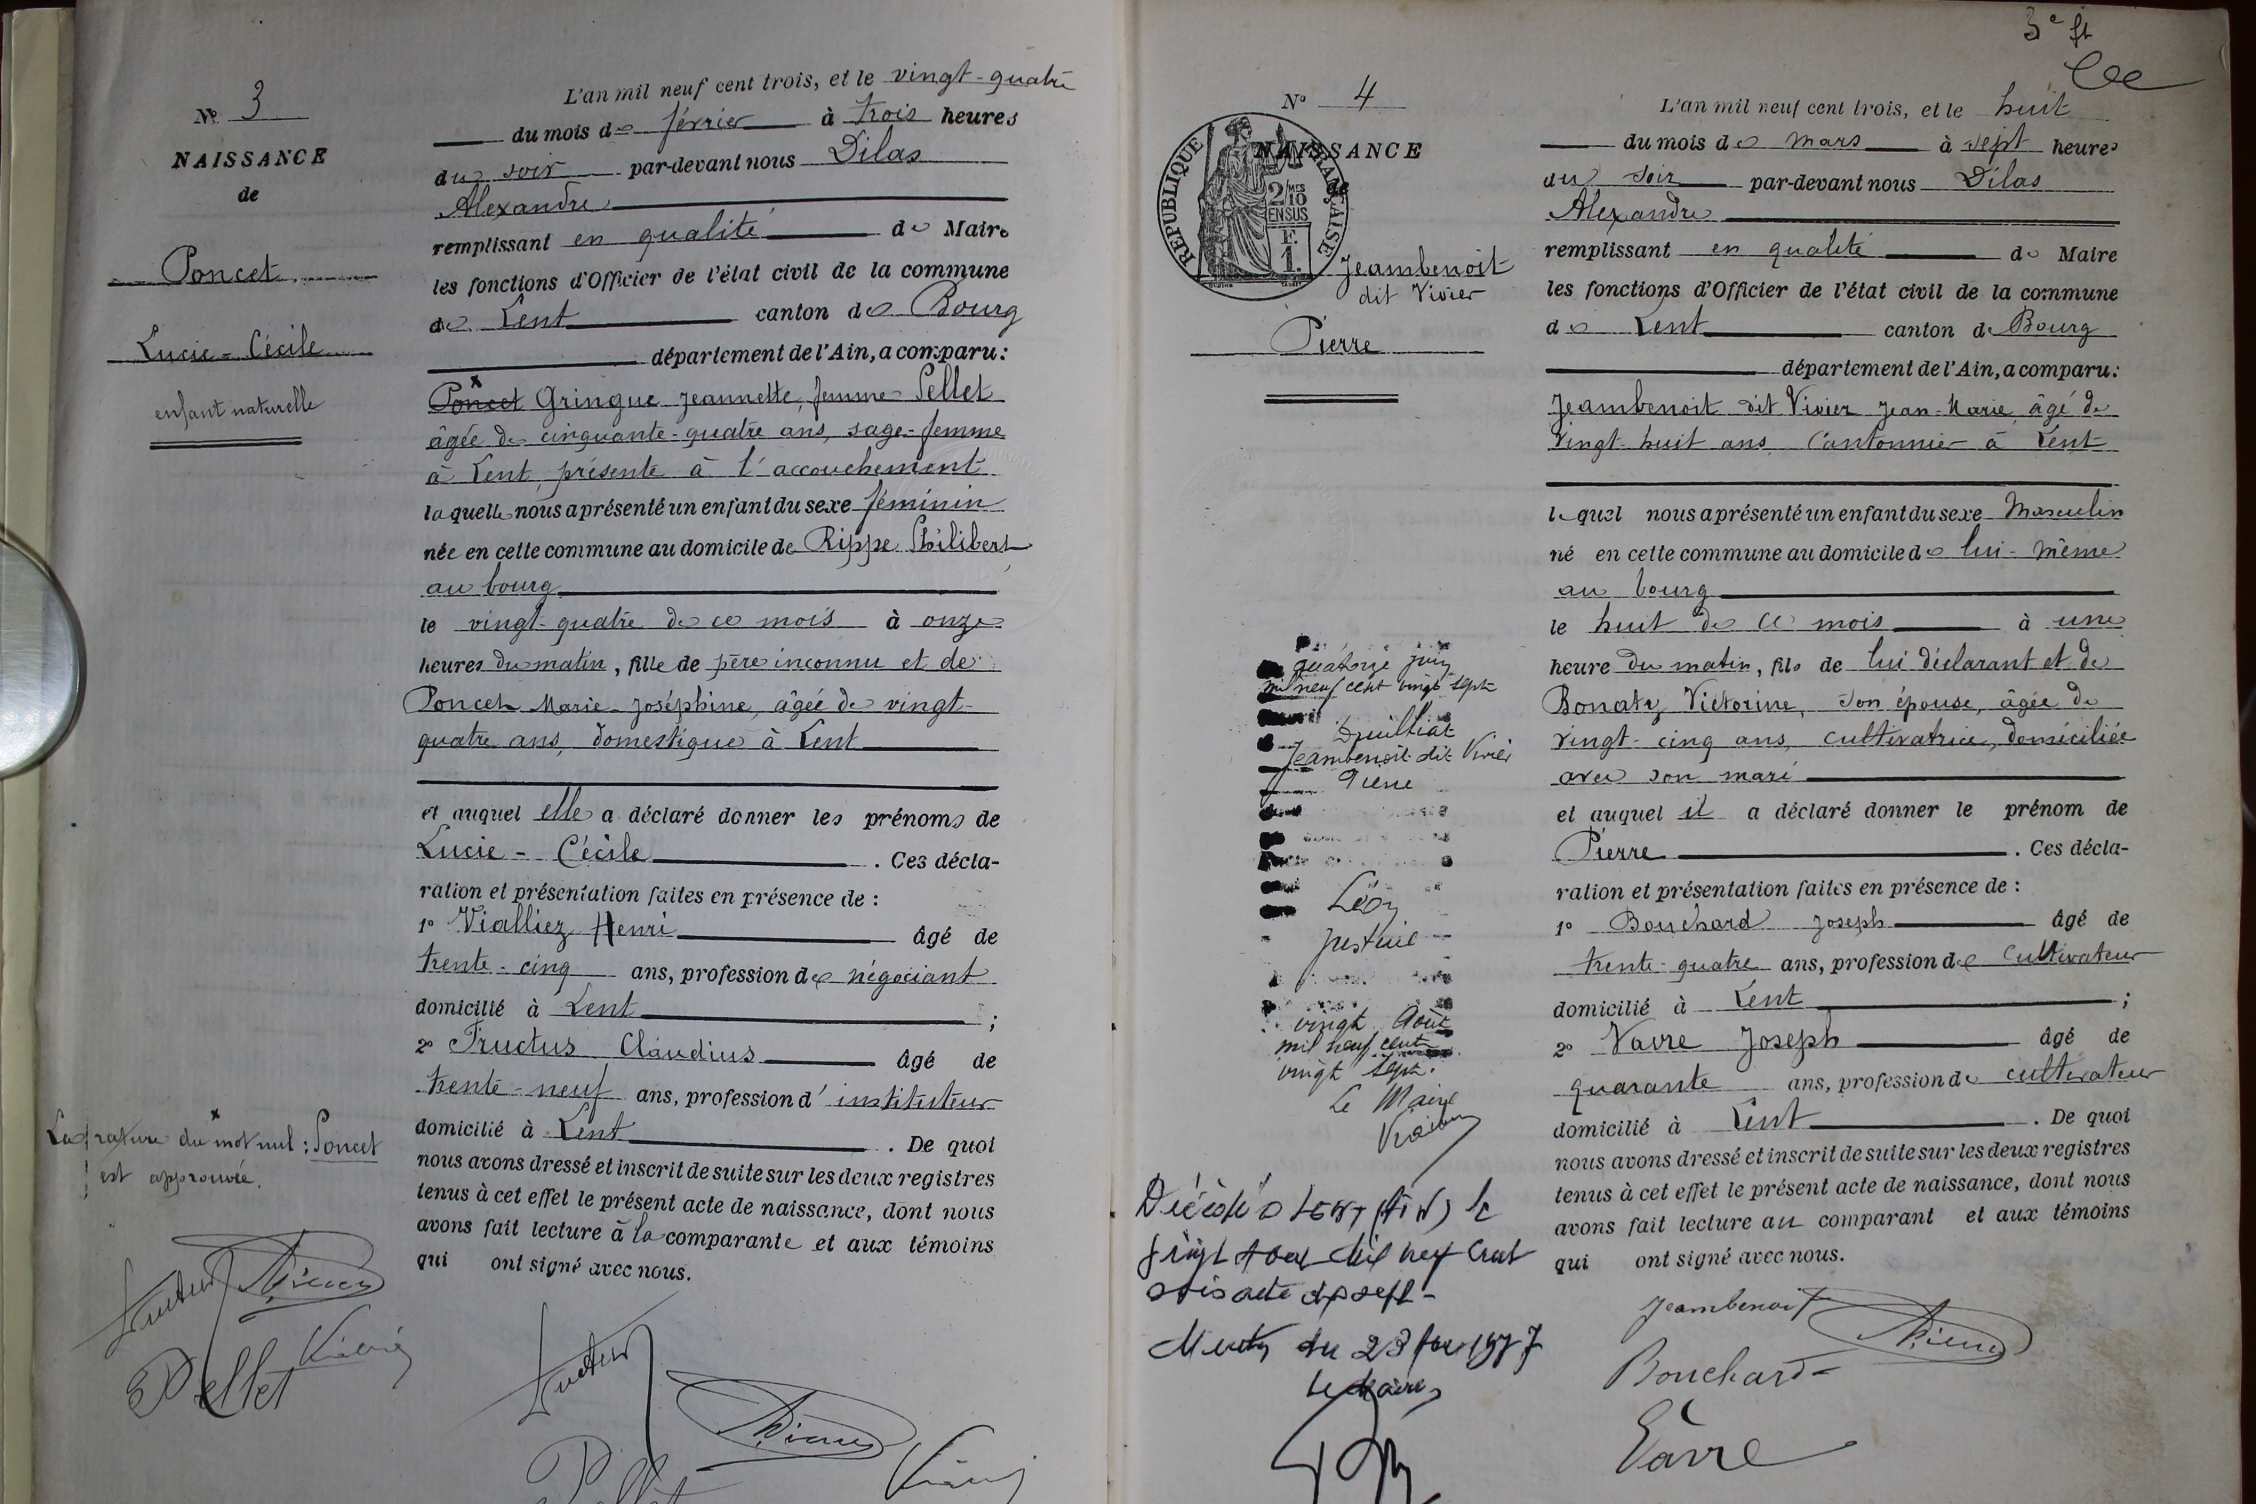 Nº 3
NAISSANCE
de
Poncet
Lucie-Cécile
enfant naturelle
L'an mil neuf cent trois, et le vingt-quatre
du mois de février à trois heures
du soir par-devant nous Dilas
Alexandre
remplissant en qualité de Maire
les fonctions d'Officier de l'état civil de la commune
de Lent canton de Bourg
département de l'Ain, a comparu:
Poncet Gringue Jeannette, femme Pellet
âgée de cinquante-quatre ans, sage-femme
à Lent présente à l'accouchement
laquelle nous a présenté un enfant du sexe féminin
née en cette commune au domicile de Rippe Philibert
au bourg
le vingt-quatre de ce mois à onze
heures du matin, fille de père inconnu et de
Poncet Marie-Joséphine, âgée de vingt-
quatre ans, domestique à Lent
et auquel elle a déclaré donner les prénoms de
Lucie-Cécile. Ces décla-
ration et présentation faites en présence de :
1º Vialliez Henri âgé de
trente-cinq ans, profession de négociant
domicilié à Lent ;
2º Fructus Claudius âgé de
trente-neuf ans, profession d'instituteur
domicilié à Lent. De quoi
nous avons dressé et inscrit de suite sur les deux registres
tenus à cet effet le présent acte de naissance, dont nous
avons fait lecture à la comparante et aux témoins
qui ont signé avec nous.
La rature du mot nul : Poncet
est approuvée.
Fructus
Pellet
Fructus
Nº 4
NAISSANCE
de
REPUBLIQUE FRANÇAISE
2/10 MES
EN SUS
F.
1.
Jeambenoit
dit Vivier
Pierre
3e ft
L'an mil neuf cent trois, et le huit
du mois de mars à sept heures
du soir par-devant nous Dilas
Alexandre
remplissant en qualité de Maire
les fonctions d'Officier de l'état civil de la commune
de Lent canton de Bourg
département de l'Ain, a comparu:
Jeambenoit dit Vivier Jean-Marie âgé de
vingt-huit ans Cantonnier à Lent
lequel nous a présenté un enfant du sexe Masculin
né en cette commune au domicile de lui-même
au bourg
le huit de ce mois à une
heure du matin, fils de lui déclarant et de
Bonatz Victorine, son épouse, âgée de
vingt-cinq ans, cultivatrice, domiciliée
avec son mari
et auquel il a déclaré donner le prénom de
Pierre. Ces décla-
ration et présentation faites en présence de :
1º Bouchard Joseph âgé de
trente-quatre ans, profession de cultivateur
domicilié à Lent ;
2º Vavre Joseph âgé de
quarante ans, profession de cultivateur
domicilié à Lent. De quoi
nous avons dressé et inscrit de suite sur les deux registres
tenus à cet effet le présent acte de naissance, dont nous
avons fait lecture au comparant et aux témoins
qui ont signé avec nous.
quatorze
mil neuf cent vingt sept
Druillat
Jeambenoit dit Vivier
Pierre
Léon
Justine
vingt Août
mil neuf cent
vingt sept.
Le Maire
Décédé à Lent (Ain) le
vingt mil neuf cent
soixante dix sept
du 23 1977
Le Maire,
Jeambenoit
Bouchard
Vavre